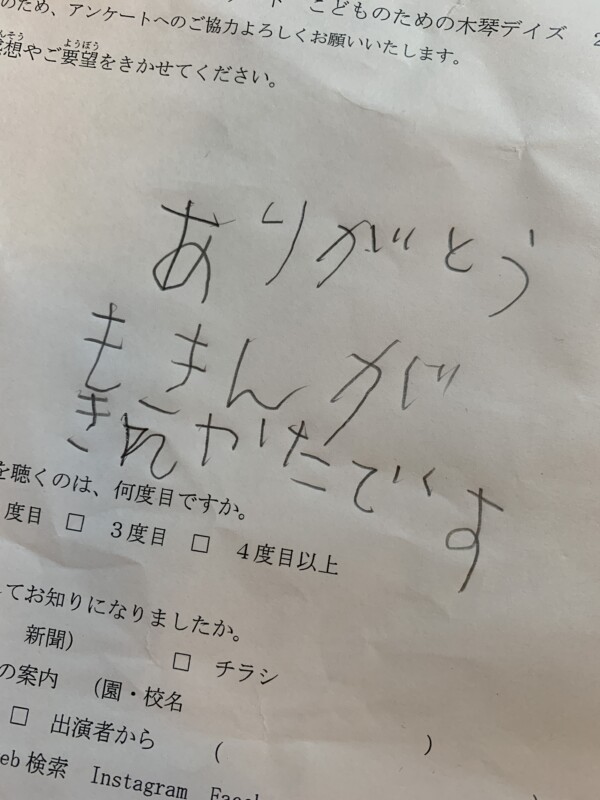 こどものための木琴デイズ
のため、アンケートへのご協力よろしくお願いいたします。
想やご要望をきかせてください。
ありがとう
もきんが
きれかたです
を聴くのは、何度目ですか。
度目 □ 3度目 □ 4度目以上
てお知りになりましたか。
新聞) □ チラシ
の案内 (園・校名
□ 出演者から ( )
eb検索 Instagram